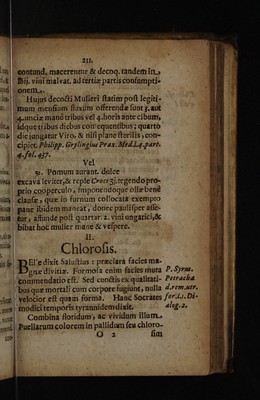 211.
contund, macerentur & decoq. tandem in
lbij. vini malvat. ad tertiæ partis consumpti-
onem.
Hujus decocti Mulieri statim post legiti-
mum mensium fluxum offerendæ sunt 3. aut
4. unciæ manè tribus vel 4. horis ante cibum,
idque tribus diebus consequentibus; quartò
die jungatur Viro, & nisi planè sterilis, con-
cipiet. Philipp. Grylingius Prax. Med. l. 4. part.
4. fol. 457.
Vel
Pomum aurant. dulce
excava leviter, & reple Croci tegendo pro-
prio cooperculo, imponendoque ollæ benè
clausæ, quæ in furnum collocata exempto
pane ibidem maneat, donec paulisper asse-
tur, assundе post quartar. 2. vini ungarici, &
bibat hoc mulier manè & vespere.
II.
Chlorosis.
BEllè dixit Salustius: præclara facies ma-
gnæ divitiæ. Formosa enim facies muta
commendatio est. Sed cunctis ex qualitati-
bus quæ mortali cum corpore fugiunt, nulla
velocior est quam forma. Hanc Socrates
modici temporis tyrannidem dixit.
P. Syrus.
Petracha
d. rem. utr.
for. l. 1. Di-
alog. 2.
Combina floridum, ac vividum illum
Puellarum colorem in pallidum seu chloro-
O 2 sim